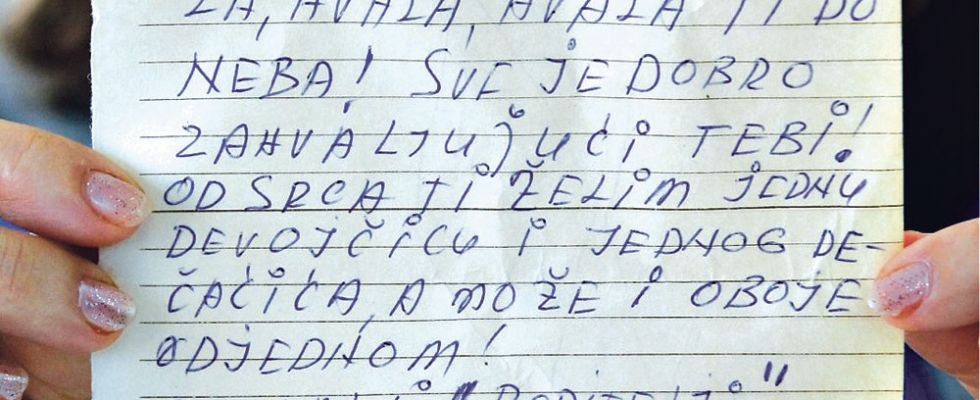 ZA, HVALA, HVALA TI DO
NEBA! SVE JE DOBRO
ZAHVALJUJUĆI TEBI!
OD SRCA TI ŽELIM JEDNU
DEVOJČICU I JEDNOG DE-
ČAĆIĆA, A MOŽE I OBOJE
ODJEDNOM!